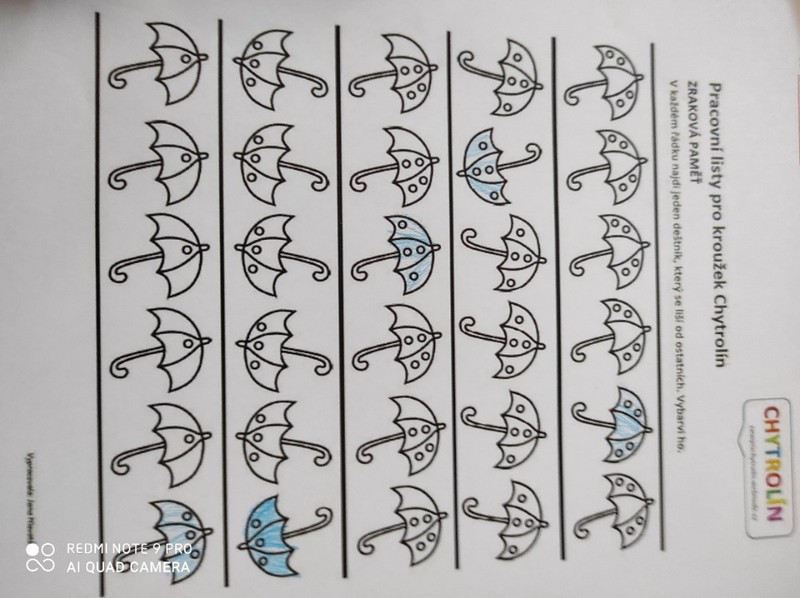 CHYTROLÍN
Pracovní listy pro kroužek Chytrolín
ZRAKOVÁ PAMĚŤ
V každém řádku najdi jeden deštník, který se liší od ostatních. Vybarvi ho.
Vypracovala: Jana
REDMI NOTE 9 PRO
AI QUAD CAMERA